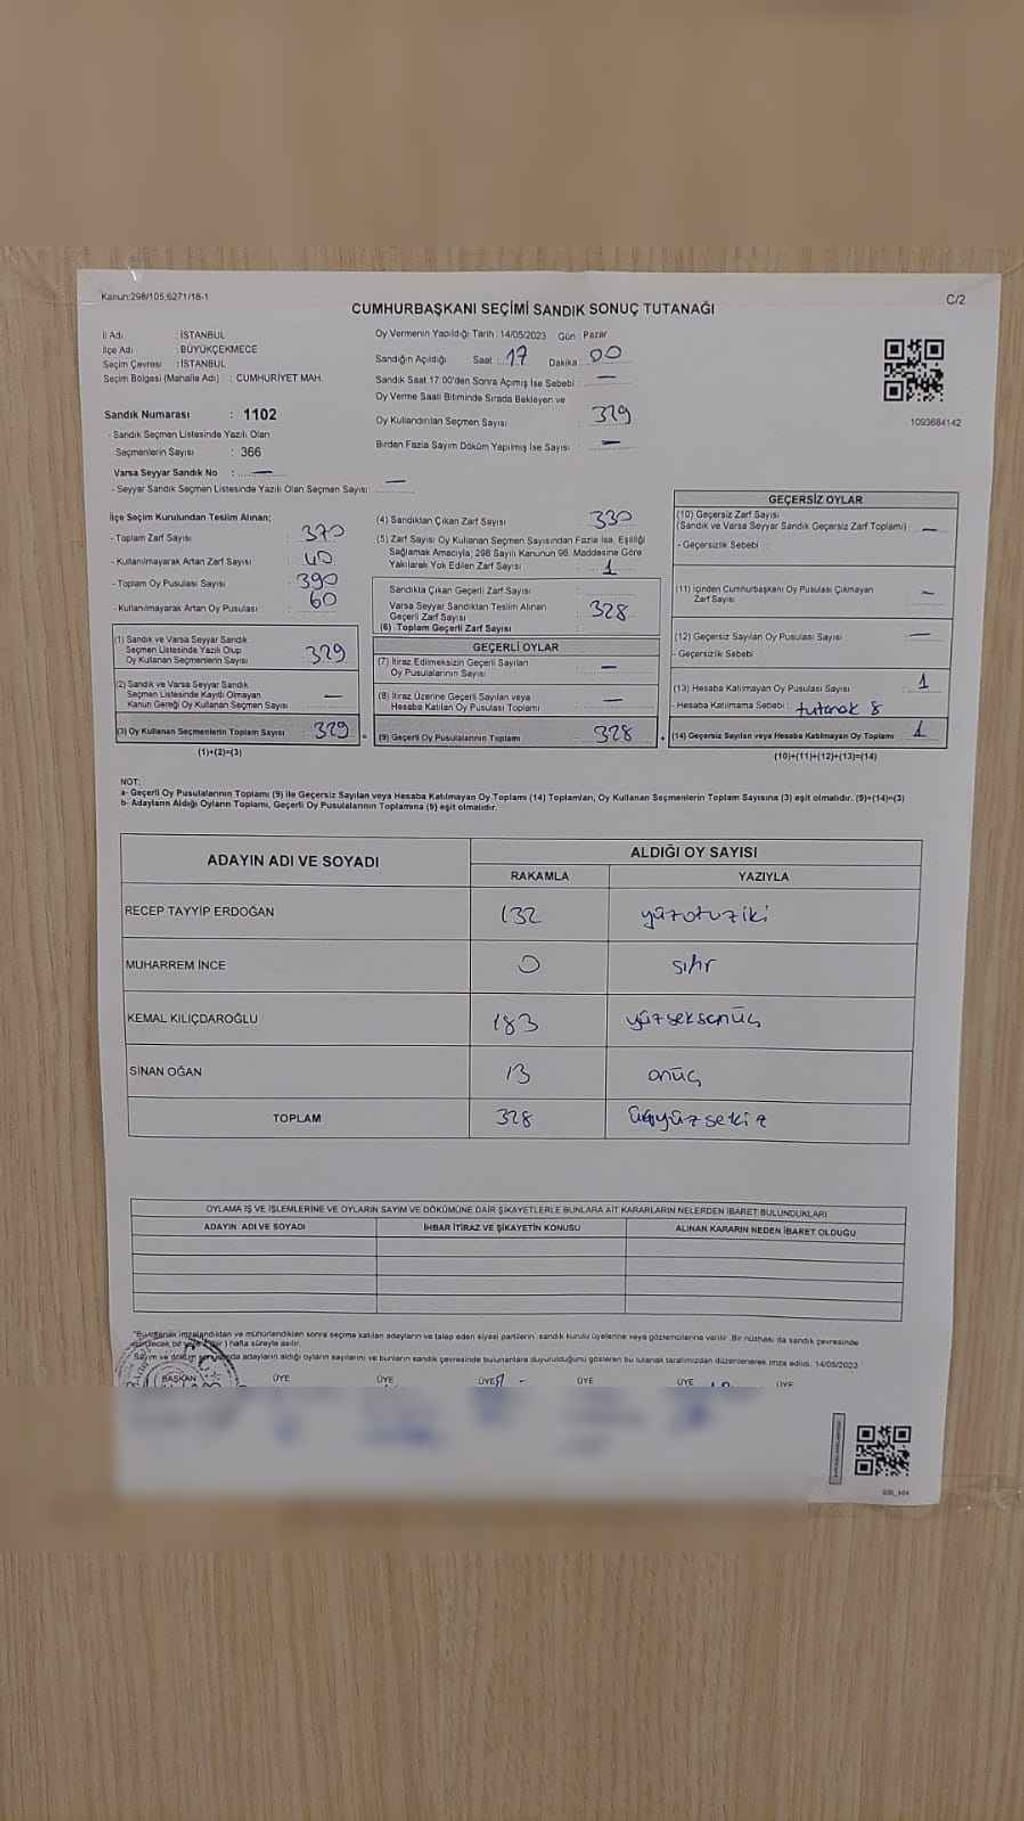 Kanun:298/105,6271/18-1
C/2
CUMHURBAŞKANI SEÇİMİ SANDIK SONUÇ TUTANAĞI
İl Adı : İSTANBUL
İlçe Adı : BÜYÜKÇEKMECE
Seçim Çevresi : İSTANBUL
Seçim Bölgesi (Mahalle Adı) : CUMHURİYET MAH.
Sandık Numarası : 1102
- Sandık Seçmen Listesinde Yazılı Olan
Seçmenlerin Sayısı : 366
Varsa Seyyar Sandık No : —
- Seyyar Sandık Seçmen Listesinde Yazılı Olan Seçmen Sayısı : —
Oy Vermenin Yapıldığı Tarih : 14/05/2023 Gün Pazar
Sandığın Açıldığı : Saat 17 Dakika 00
Sandık Saat 17:00'den Sonra Açımış İse Sebebi : —
Oy Verme Saati Bitiminde Sırada Bekleyen ve
Oy Kullandırılan Seçmen Sayısı : 329
Birden Fazla Sayım Döküm Yapılmış İse Sayısı : —
1093684142
İlçe Seçim Kurulundan Teslim Alınan;
- Toplam Zarf Sayısı : 370
- Kullanılmayarak Artan Zarf Sayısı : 40
- Toplam Oy Pusulası Sayısı : 390
- Kullanılmayarak Artan Oy Pusulası : 60
(1) Sandık ve Varsa Seyyar Sandık
Seçmen Listesinde Yazılı Olup
Oy Kullanan Seçmenlerin Sayısı 329
(2) Sandık ve Varsa Seyyar Sandık
Seçmen Listesinde Kayıtlı Olmayan
Kanun Gereği Oy Kullanan Seçmen Sayısı —
(3) Oy Kullanan Seçmenlerin Toplam Sayısı 329 =
(1)+(2)=(3)
(4) Sandıktan Çıkan Zarf Sayısı : 330
(5) Zarf Sayısı Oy Kullanan Seçmen Sayısından Fazla İse, Eşitliği
Sağlamak Amacıyla; 298 Sayılı Kanunun 98. Maddesine Göre
Yakılarak Yok Edilen Zarf Sayısı : 1
Sandıkta Çıkan Geçerli Zarf Sayısı
Varsa Seyyar Sandıktan Teslim Alınan
Geçerli Zarf Sayısı
(6) Toplam Geçerli Zarf Sayısı 328
GEÇERLİ OYLAR
(7) İtiraz Edilmeksizin Geçerli Sayılan
Oy Pusulalarının Sayısı —
(8) İtiraz Üzerine Geçerli Sayılan veya
Hesaba Katılan Oy Pusulası Toplamı —
(9) Geçerli Oy Pusulalarının Toplamı 328 +
GEÇERSİZ OYLAR
(10) Geçersiz Zarf Sayısı
(Sandık ve Varsa Seyyar Sandık Geçersiz Zarf Toplamı) : —
- Geçersizlik Sebebi :
(11) İçinden Cumhurbaşkanı Oy Pusulası Çıkmayan
Zarf Sayısı : —
(12) Geçersiz Sayılan Oy Pusulası Sayısı : —
- Geçersizlik Sebebi
(13) Hesaba Katılmayan Oy Pusulası Sayısı 1
- Hesaba Katılmama Sebebi : tutanak 8
(14) Geçersiz Sayılan veya Hesaba Katılmayan Oy Toplamı 1
(10)+(11)+(12)+(13)=(14)
NOT:
a- Geçerli Oy Pusulalarının Toplamı (9) ile Geçersiz Sayılan veya Hesaba Katılmayan Oy Toplamı (14) Toplamları, Oy Kullanan Seçmenlerin Toplam Sayısına (3) eşit olmalıdır. (9)+(14)=(3)
b- Adayların Aldığı Oyların Toplamı, Geçerli Oy Pusulalarının Toplamına (9) eşit olmalıdır.
ADAYIN ADI VE SOYADI ALDIĞI OY SAYISI
RAKAMLA YAZIYLA
RECEP TAYYİP ERDOĞAN 132 yüzotuziki
MUHARREM İNCE 0 sıfır
KEMAL KILIÇDAROĞLU 183 yüzseksenüç
SİNAN OĞAN 13 onüç
TOPLAM 328 üçyüzsekiz
OYLAMA İŞ VE İŞLEMLERİNE VE OYLARIN SAYIM VE DÖKÜMÜNE DAİR ŞİKAYETLERLE BUNLARA AİT KARARLARIN NELERDEN İBARET BULUNDUKLARI
ADAYIN ADI VE SOYADI İHBAR İTİRAZ VE ŞİKAYETİN KONUSU ALINAN KARARIN NEDEN İBARET OLDUĞU
imzalandıktan ve mühürlendikten sonra seçime katılan adayların ve talep eden siyasi partilerin sandık kurulu üyelerine veya gözlemcilerine verilir. Bir nüshası da sandık çevresinde
hafta süreyle asılır.
Sayım ve döküm adayların aldığı oyların sayılarını ve bunların sandık çevresinde bulunanlara duyurulduğunu gösteren bu tutanak tarafımızdan düzenlenerek imza edildi. 14/05/2023
BAŞKAN ÜYE ÜYE ÜYE ÜYE ÜYE ÜYE